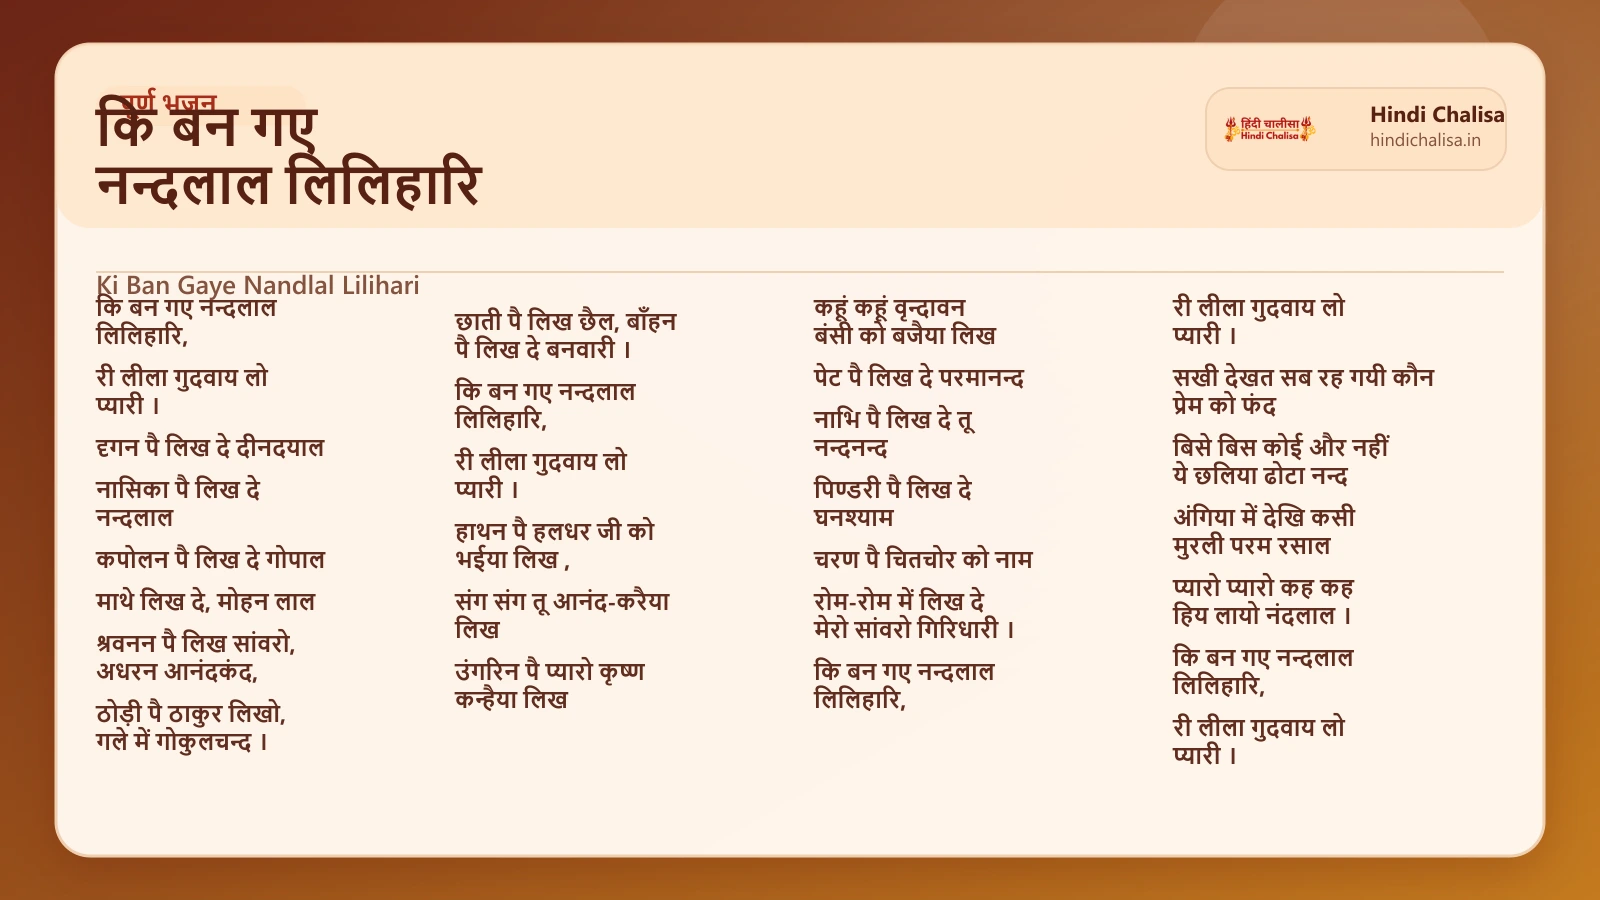 पूर्ण भजन
कि बन गए
नन्दलाल लिलिहारि
हिंदी चालीसा
Hindi Chalisa
Hindi Chalisa
hindichalisa.in
Ki Ban Gaye Nandlal Lilihari
कि बन गए नन्दलाल
लिलिहारि,
री लीला गुदवाय लो
प्यारी ।
दृगन पै लिख दे दीनदयाल
नासिका पै लिख दे
नन्दलाल
कपोलन पै लिख दे गोपाल
माथे लिख दे, मोहन लाल
श्रवनन पै लिख सांवरो,
अधरन आनंदकंद,
ठोड़ी पै ठाकुर लिखो,
गले में गोकुलचन्द ।
छाती पै लिख छैल, बाँहन
पै लिख दे बनवारी ।
कि बन गए नन्दलाल
लिलिहारि,
री लीला गुदवाय लो
प्यारी ।
हाथन पै हलधर जी को
भईया लिख ,
संग संग तू आनंद-करैया
लिख
उंगरिन पै प्यारो कृष्ण
कन्हैया लिख
कहूं कहूं वृन्दावन
बंसी को बजैया लिख
पेट पै लिख दे परमानन्द
नाभि पै लिख दे तू
नन्दनन्द
पिण्डरी पै लिख दे
घनश्याम
चरण पै चितचोर को नाम
रोम-रोम में लिख दे
मेरो सांवरो गिरिधारी ।
कि बन गए नन्दलाल
लिलिहारि,
री लीला गुदवाय लो
प्यारी ।
सखी देखत सब रह गयी कौन
प्रेम को फंद
बिसे बिस कोई और नहीं
ये छलिया ढोटा नन्द
अंगिया में देखि कसी
मुरली परम रसाल
प्यारो प्यारो कह कह
हिय लायो नंदलाल ।
कि बन गए नन्दलाल
लिलिहारि,
री लीला गुदवाय लो
प्यारी ।